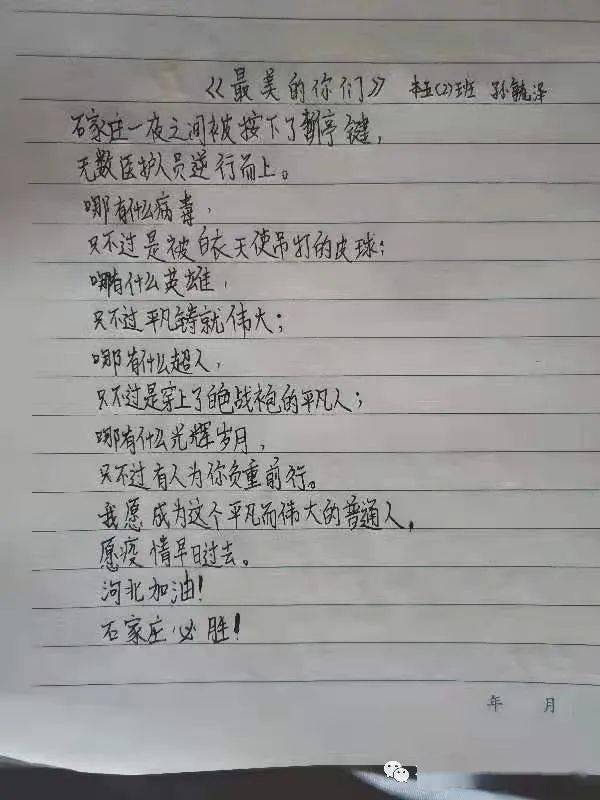 《最美的你们》 本五(2)班 孙毓泽
石家庄一夜之间被按下了暂停键，
无数医护人员逆行而上。
哪有什么病毒，
只不过是被白衣天使吊打的皮球；
哪有什么英雄，
只不过平凡铸就伟大；
哪有什么超人，
只不过是穿上了白色战袍的平凡人；
哪有什么光辉岁月，
只不过有人为你负重前行。
我愿成为这个平凡而伟大的普通人，
愿疫情早日过去。
河北加油！
石家庄必胜！
年 月